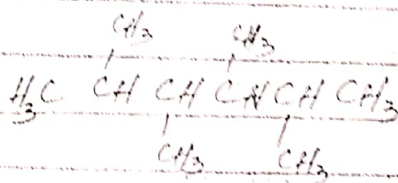 CH3 CH3
H3C CH CH CH CH CH3
CH3 CH3